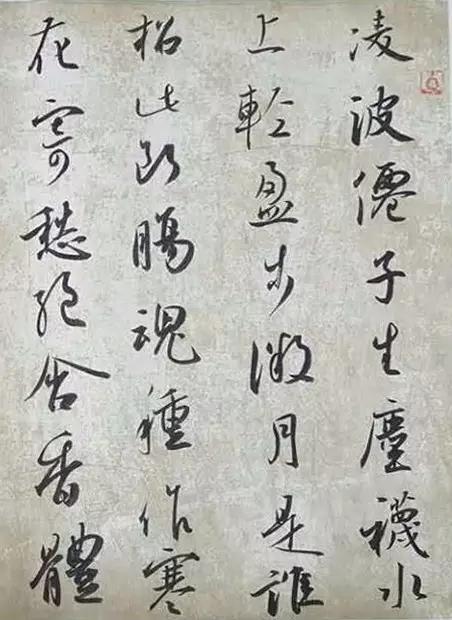 凌波僊子生塵襪水
上輕盈步微月是誰
招此斷腸魂種作寒
花寄愁絕含香體